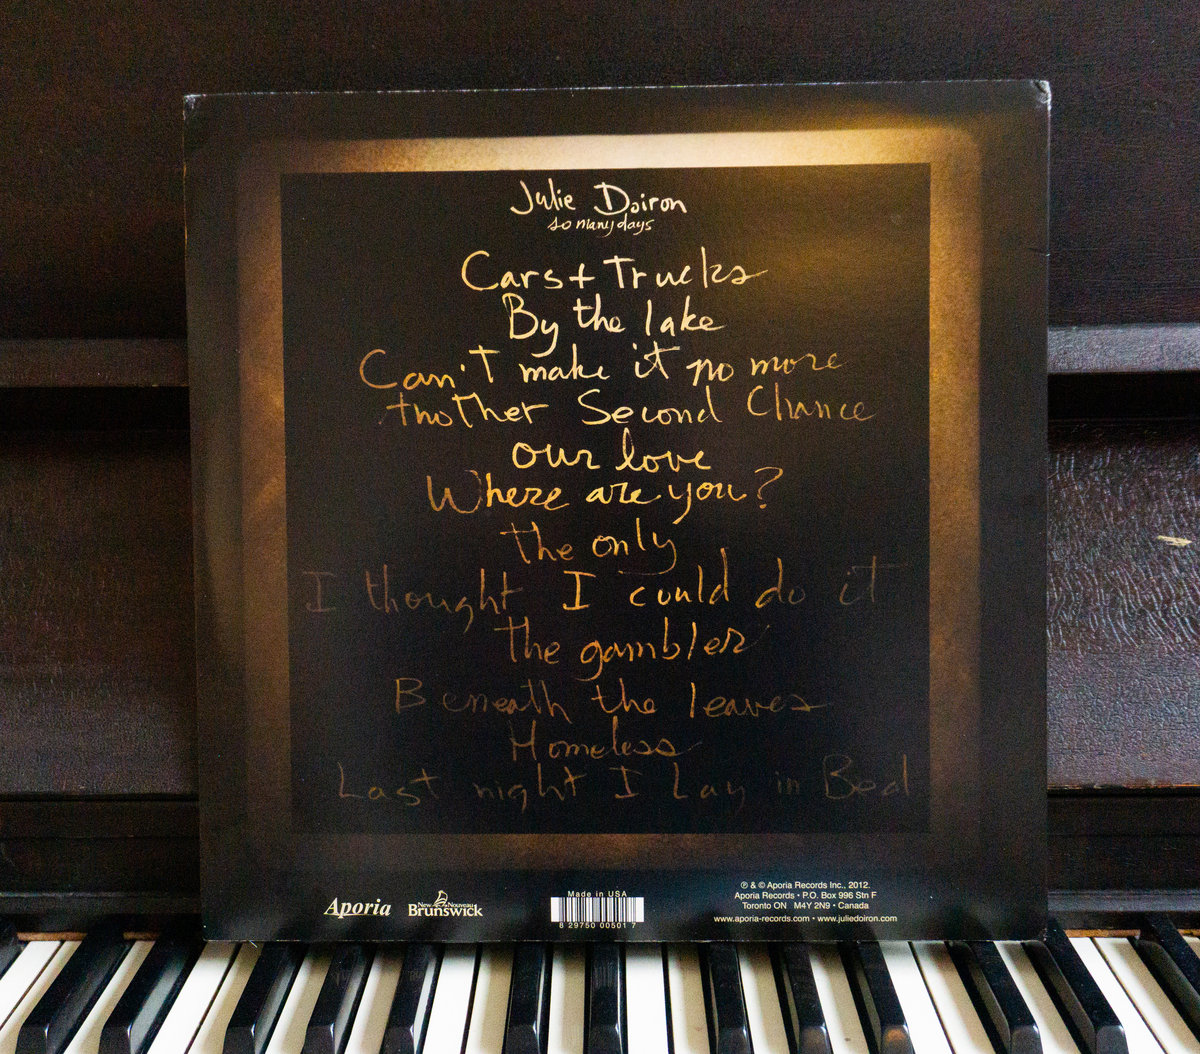 Julie Doiron
so many days
Cars + Trucks
By the lake
Can't make it no more
Another Second Chance
our love
Where are you?
the only
I thought I could do it
the gambler
Beneath the leaves
Homeless
Last night I Lay in Bed
Aporia
New Nouveau
Brunswick
Made in USA
8 29750 00501 7
℗ & © Aporia Records Inc., 2012.
Aporia Records • P.O. Box 996 Stn F
Toronto ON M4Y 2N9 • Canada
www.aporia-records.com • www.juliedoiron.com